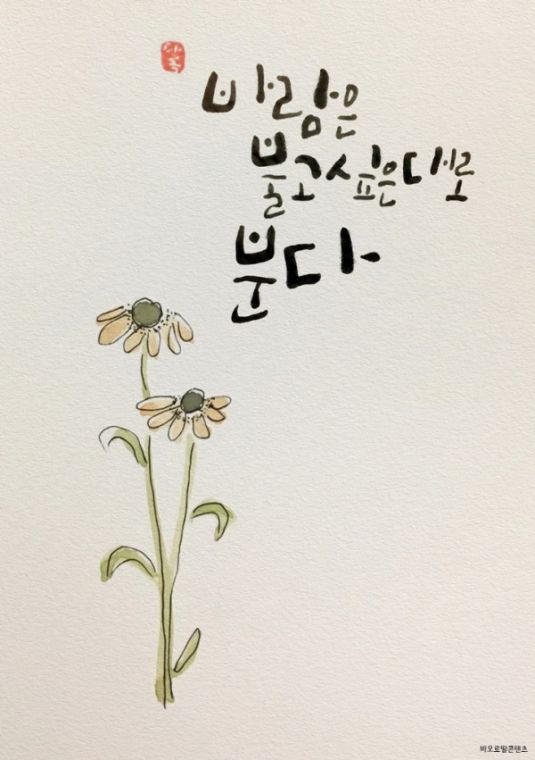 바람은
불고싶은대로
분다
바오로딸콘텐츠